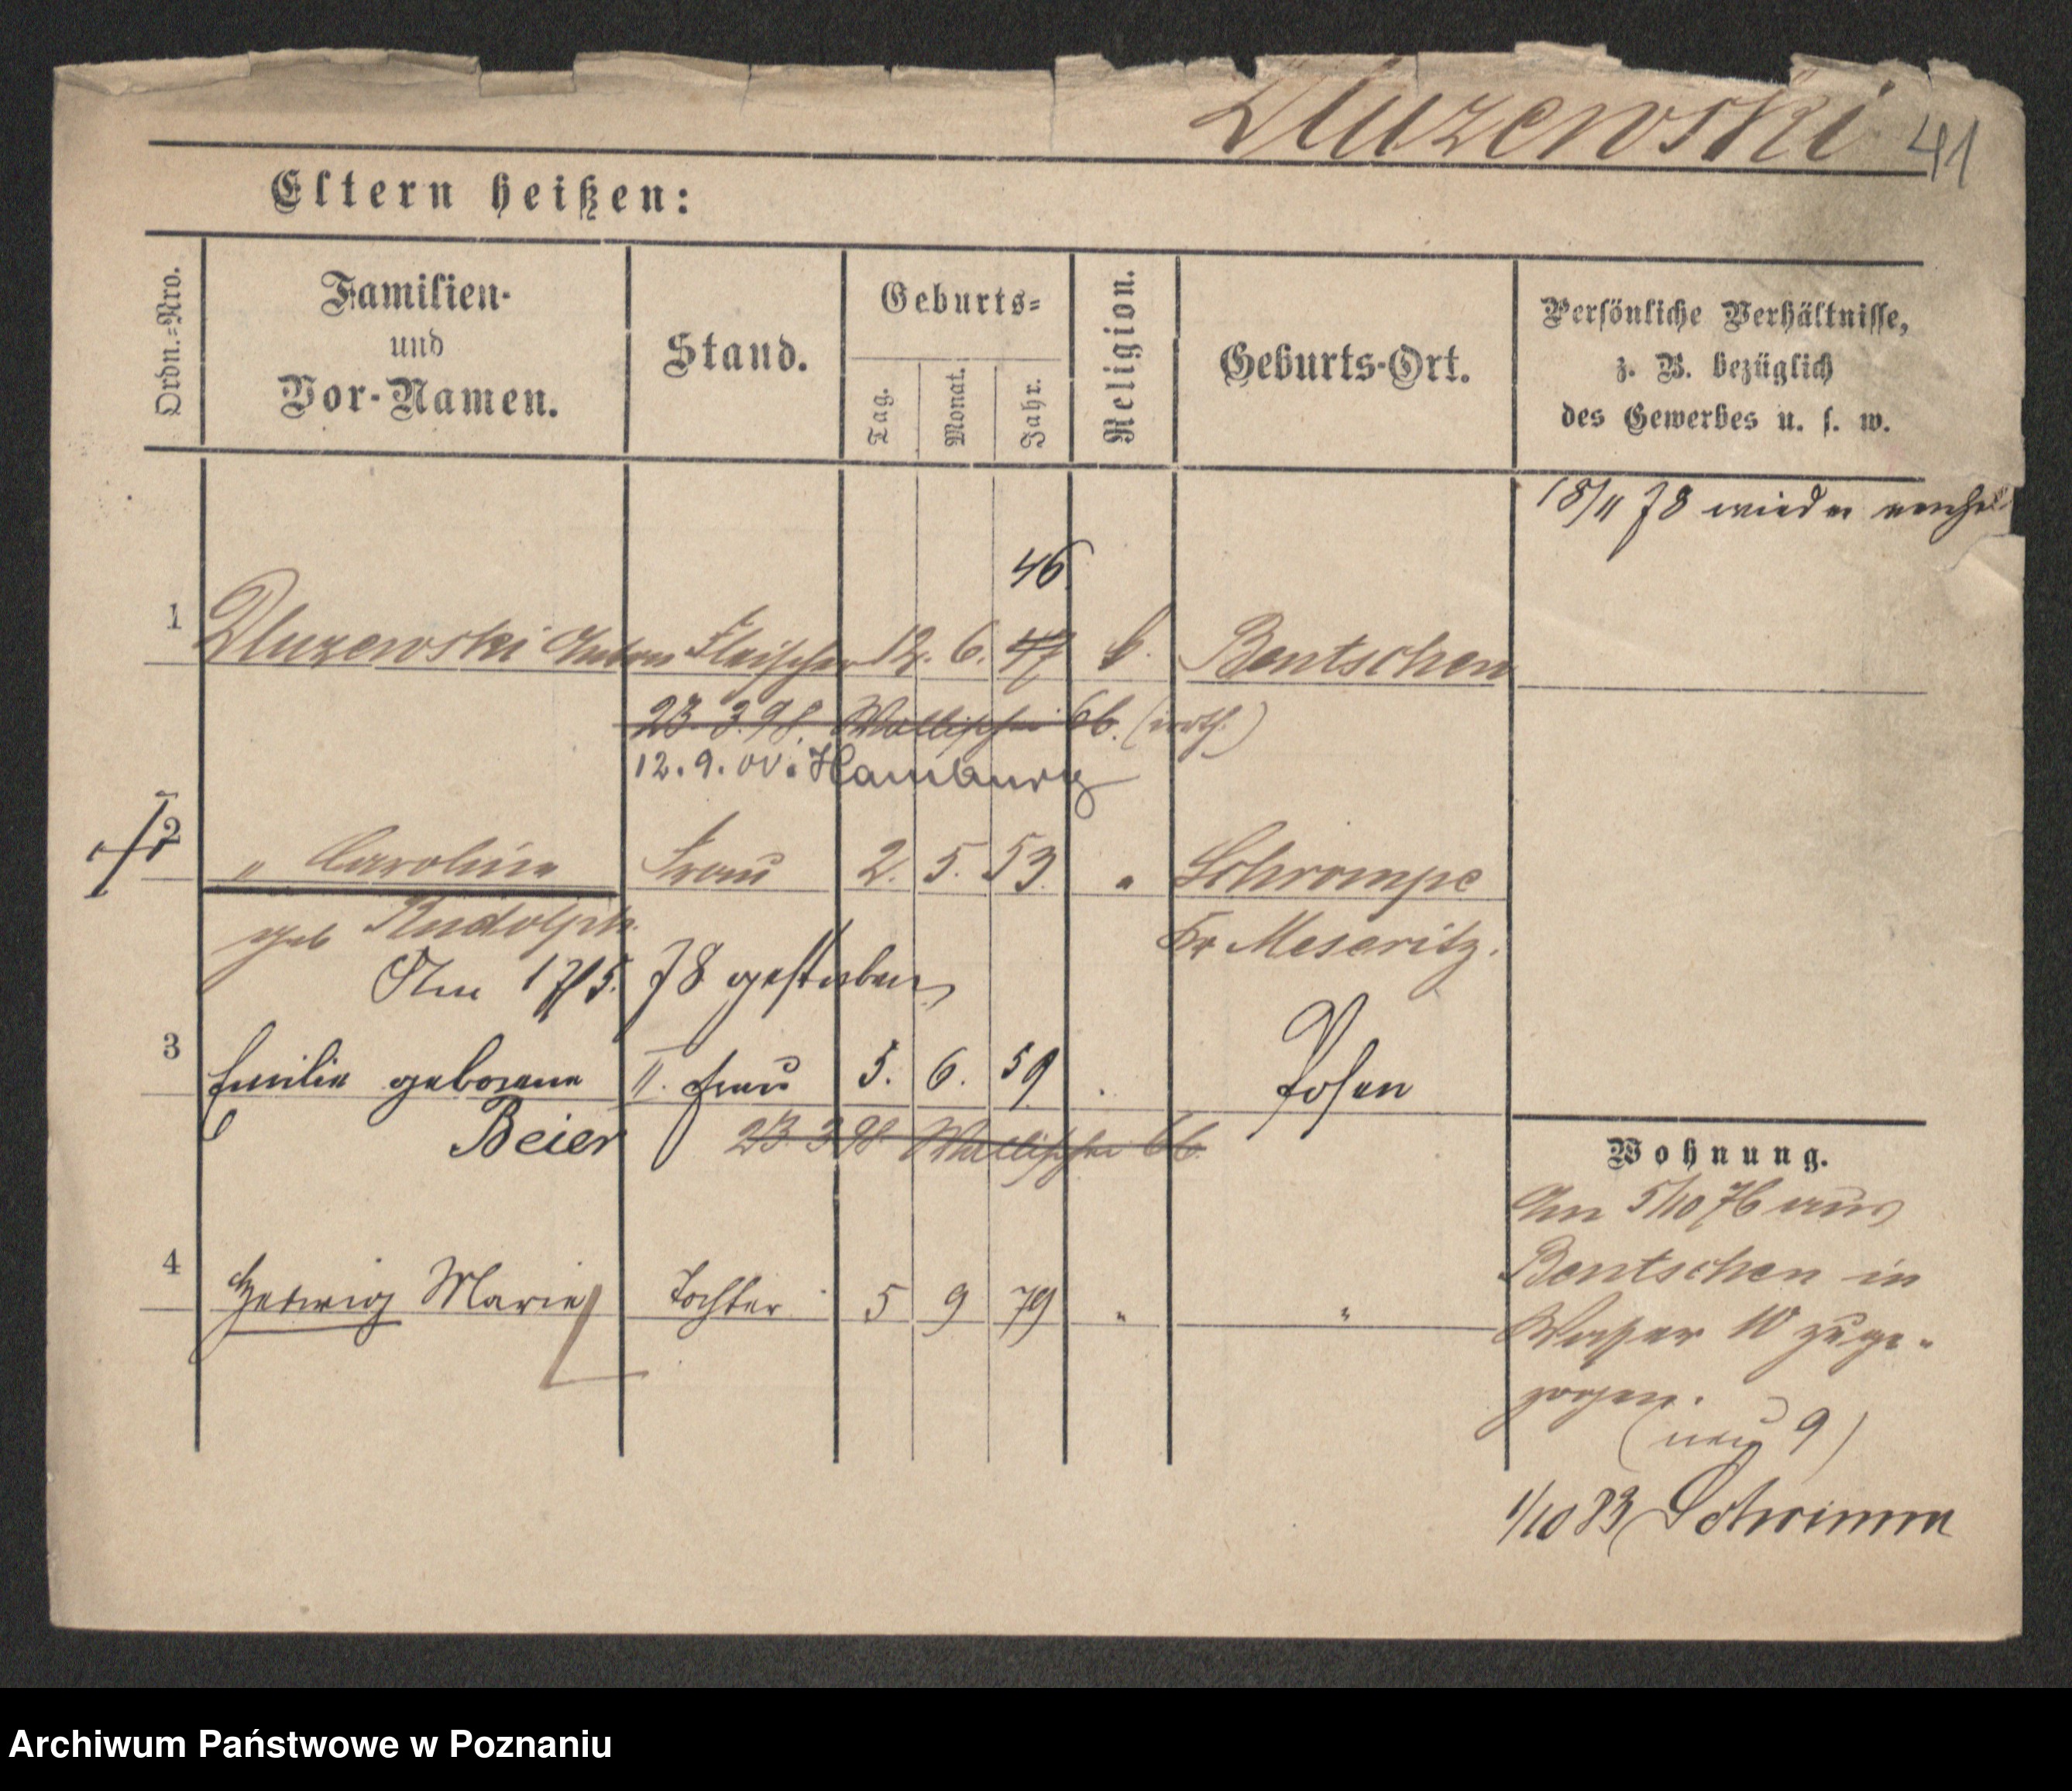 Dluzewski 41
Eltern heißen:
Ordn.=Nro.
Familien-
und
Vor-Namen.
Stand.
Geburts=
Tag.
Monat.
Jahr.
Religion.
Geburts-Ort.
Persönliche Verhältnisse,
z. B. bezüglich
des Gewerbes u. s. w.
18/11 78 wieder
46
1 Dluzewski Anton Fleischer 12. 6. 47 k. Bentschen
23. 3. 98. Wallischei 66.
12. 9. 00. Hamburg
2 " Caroline Frau 2. 5. 53. " Schrompe
geb Rudolph. Kr Meseritz.
Am 17/5. 78 gestorben
3 Emilie geborene II. Frau 5. 6. 59 Posen
Beier 23. 3 98 Wallischei 66.
4 Hedwig Marie Tochter 5 9 79 " "
Wohnung.
Am 5/10 76 aus
Bentschen in
10 zuge-
zogen.
(neu 9)
1/10 83 Schrimm
Archiwum Państwowe w Poznaniu